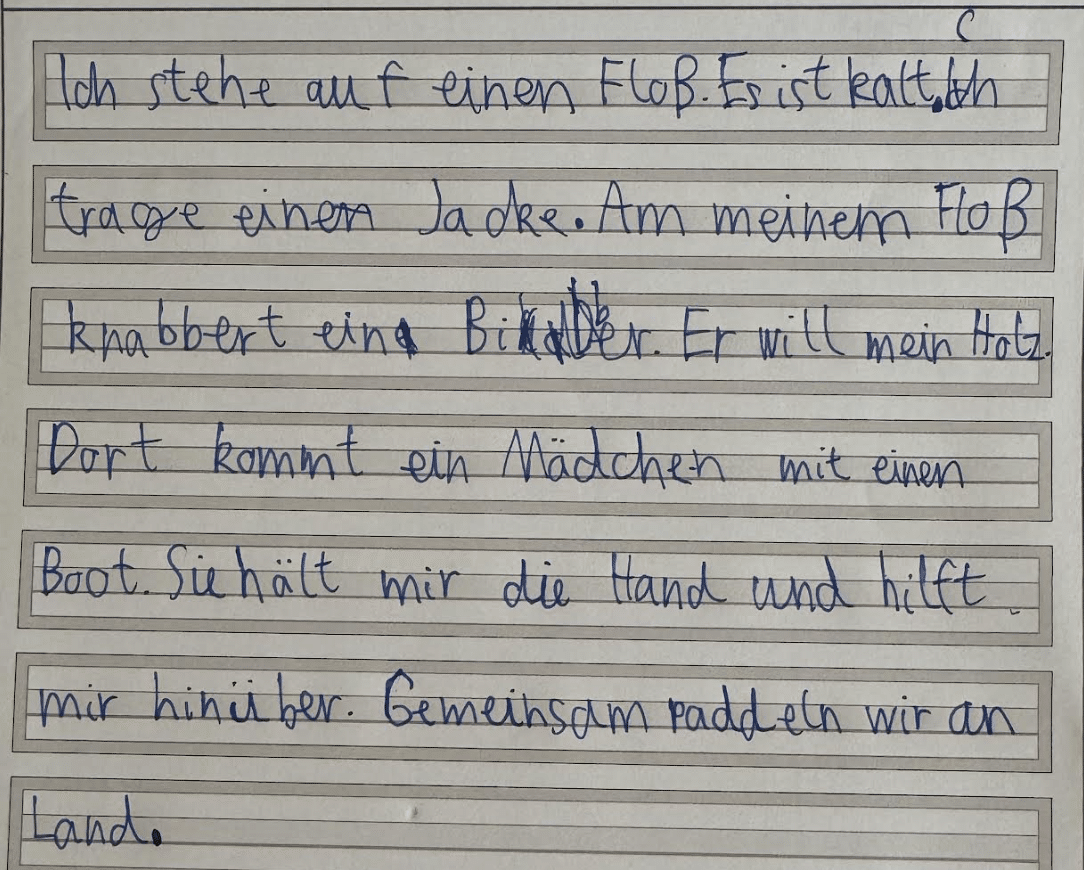 Ich stehe auf einen Floß. Es ist kalt. Ich
trage einen Jacke. Am meinem Floß
knabbert ein Biber. Er will mein Holz.
Dort kommt ein Mädchen mit einen
Boot. Sie hält mir die Hand und hilft
mir hinüber. Gemeinsam paddeln wir an
Land.